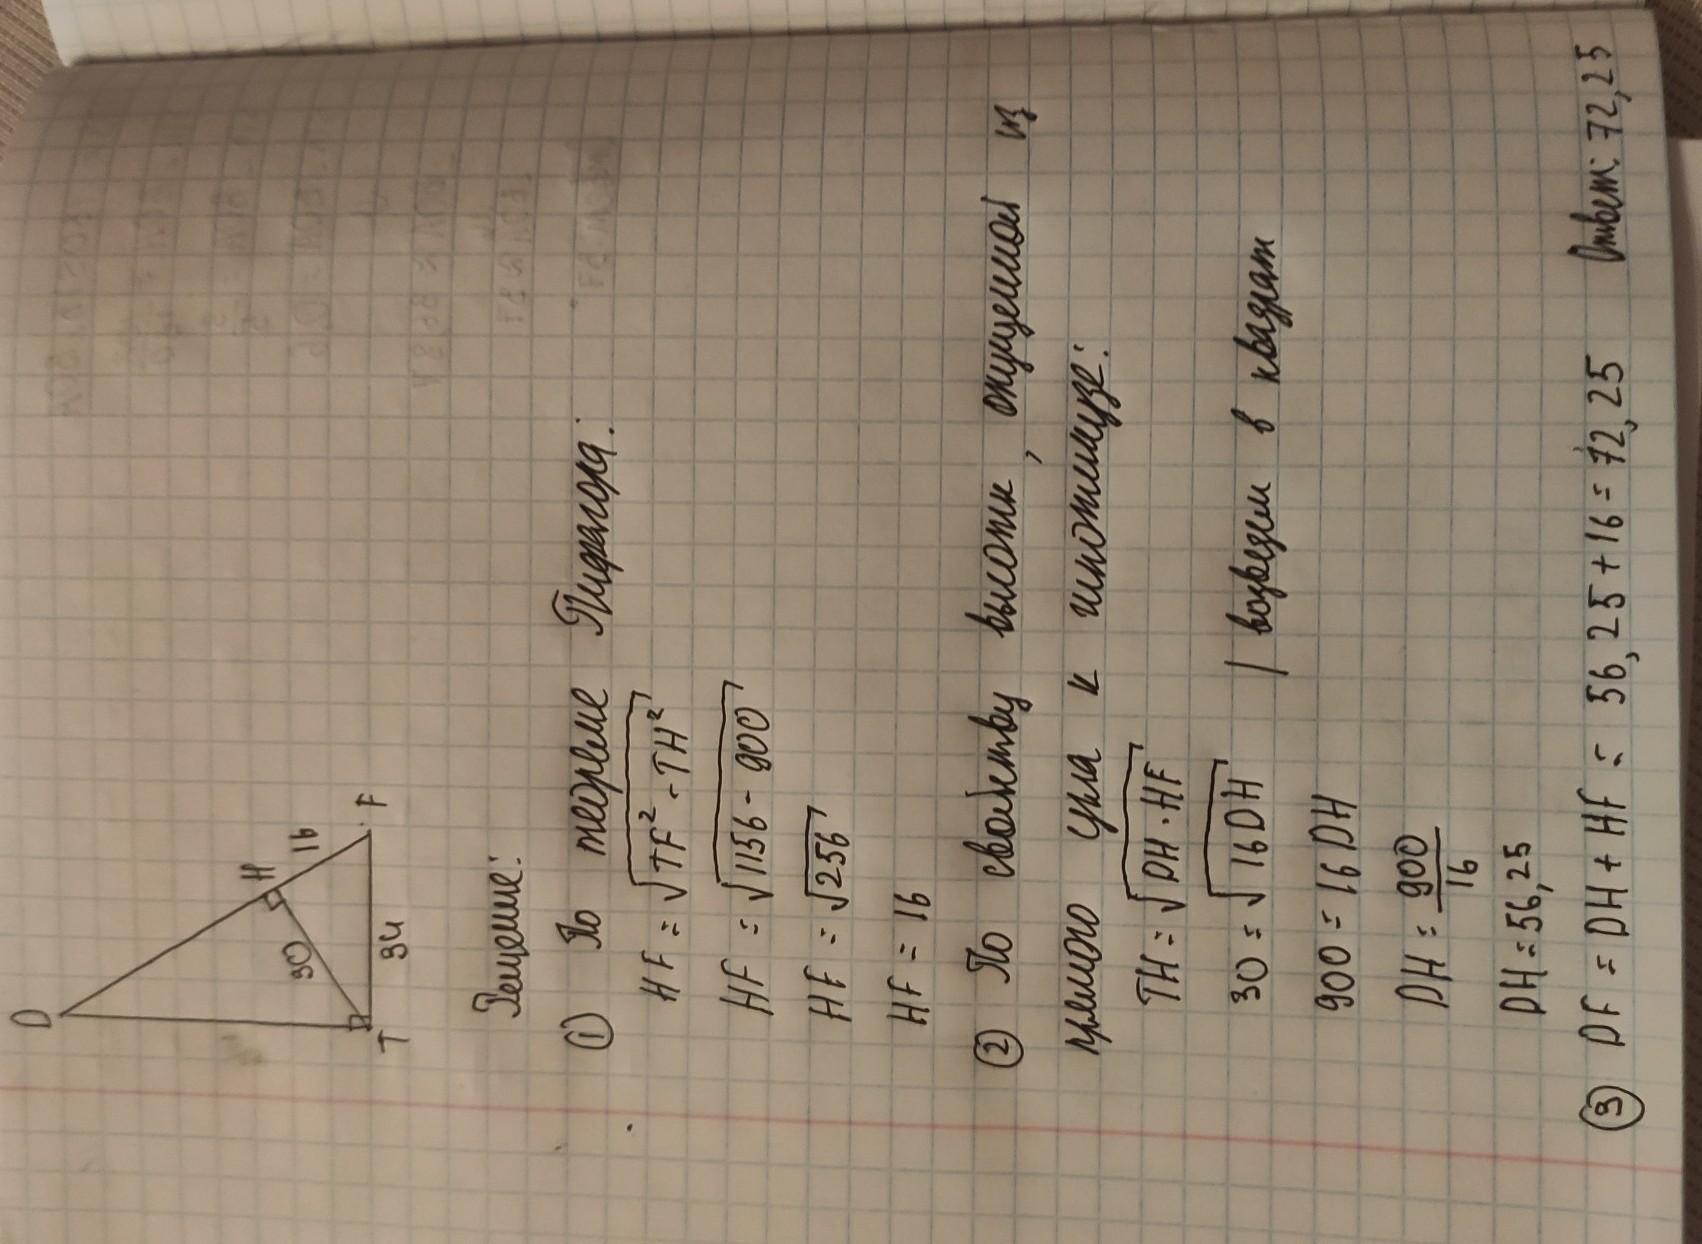 D
H
16
30
F
T
34
Решение:
① По теореме Пифагора:
HF = √TF² - TH²
HF = √1156 - 900
HF = √256
HF = 16
② По свойству высоты, опущенной из
прямого угла к гипотенузе:
TH = √DH · HF
30 = √16DH | возведем в квадрат
900 = 16DH
DH = 900/16
DH = 56,25
③ DF = DH + HF = 56,25 + 16 = 72,25 Ответ: 72,25